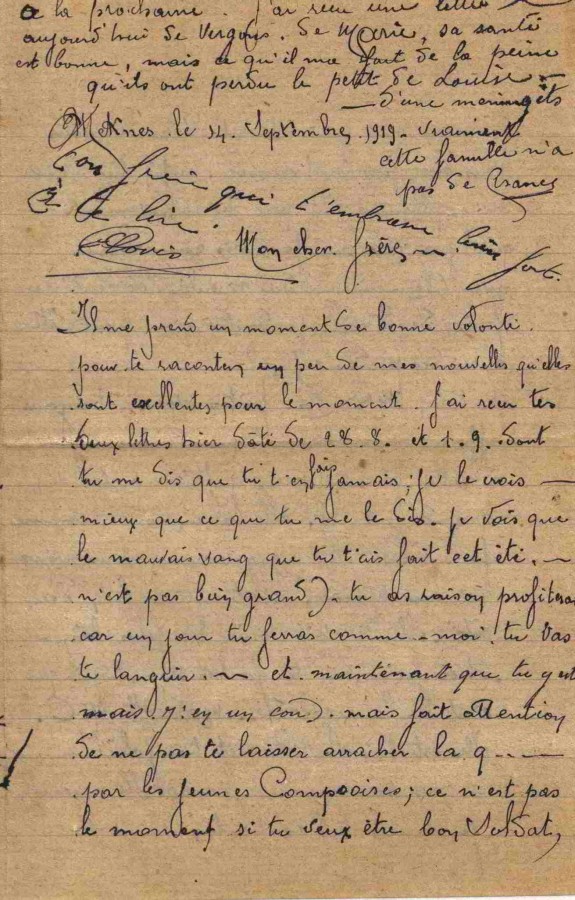 a la prochaine. J'ai recu une lettre
aujourd'hui de Vergons. de Marie, sa santé
est bonne, mais ce qu'il me fait de la peine
qu'ils ont perdu le petit de Louise
d'une meningits
Meknes le 14. Septembres 1919. vraiment
cette famille n'a
pas de Chance
Ton frere qui t'embrasse
bien fort.
te lire.
Clovis
Mon cher frère
Il me prend un moment de bonne volonté
pour te raconter un peu de mes nouvelles qu'elles
sont excellentes pour le moment. J'ai recu tes
deux lettres hier daté de 28.8. et 1.9. dont
tu me dis que tu t'en fais jamais; je le crois
mieux que ce que tu me le dis. je vois que
le mauvais sang que tu t'ais fait cet été.
n'est pas bien grand). tu as raison profites
car un jour tu ferras comme-moi. tu vas
te languir. et. maintenant que tu y est
mais y: en un cou). mais fait attention
de ne pas te laisser arracher la q...
par les jeunes Comp; ce n'est pas
le moment si tu veux être bon Soldat,